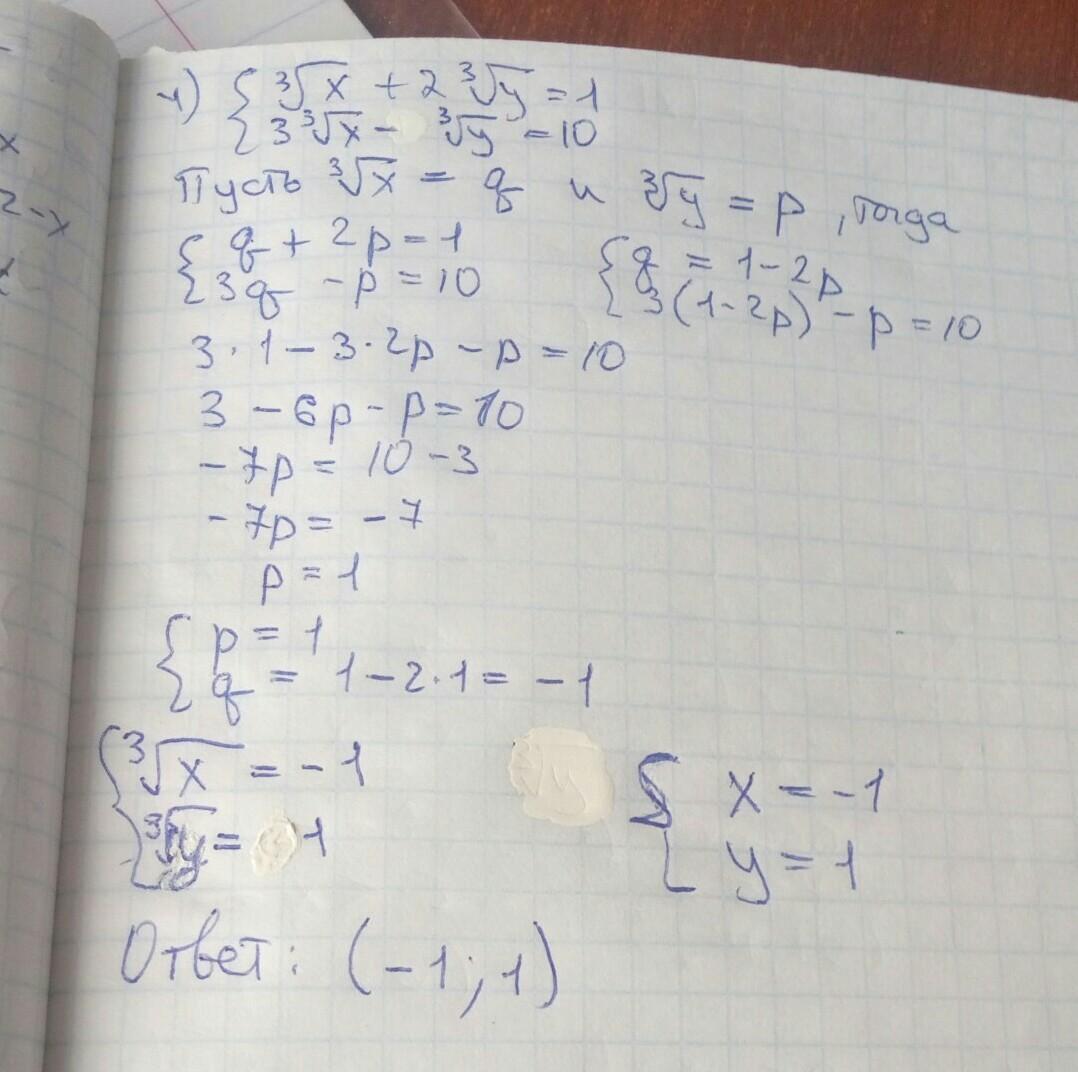 4) { ∛x + 2 ∛y = 1
{ 3 ∛x - ∛y = 10
Пусть ∛x = q и ∛y = p, тогда
{ q + 2p = 1
{ 3q - p = 10
{ q = 1 - 2p
{ 3(1 - 2p) - p = 10
3 · 1 - 3 · 2p - p = 10
3 - 6p - p = 10
- 7p = 10 - 3
- 7p = - 7
p = 1
{ p = 1
{ q = 1 - 2 · 1 = - 1
{ ∛x = - 1
{ ∛y = 1
{ x = -1
{ y = 1
Ответ: (-1; 1)
x
2-x